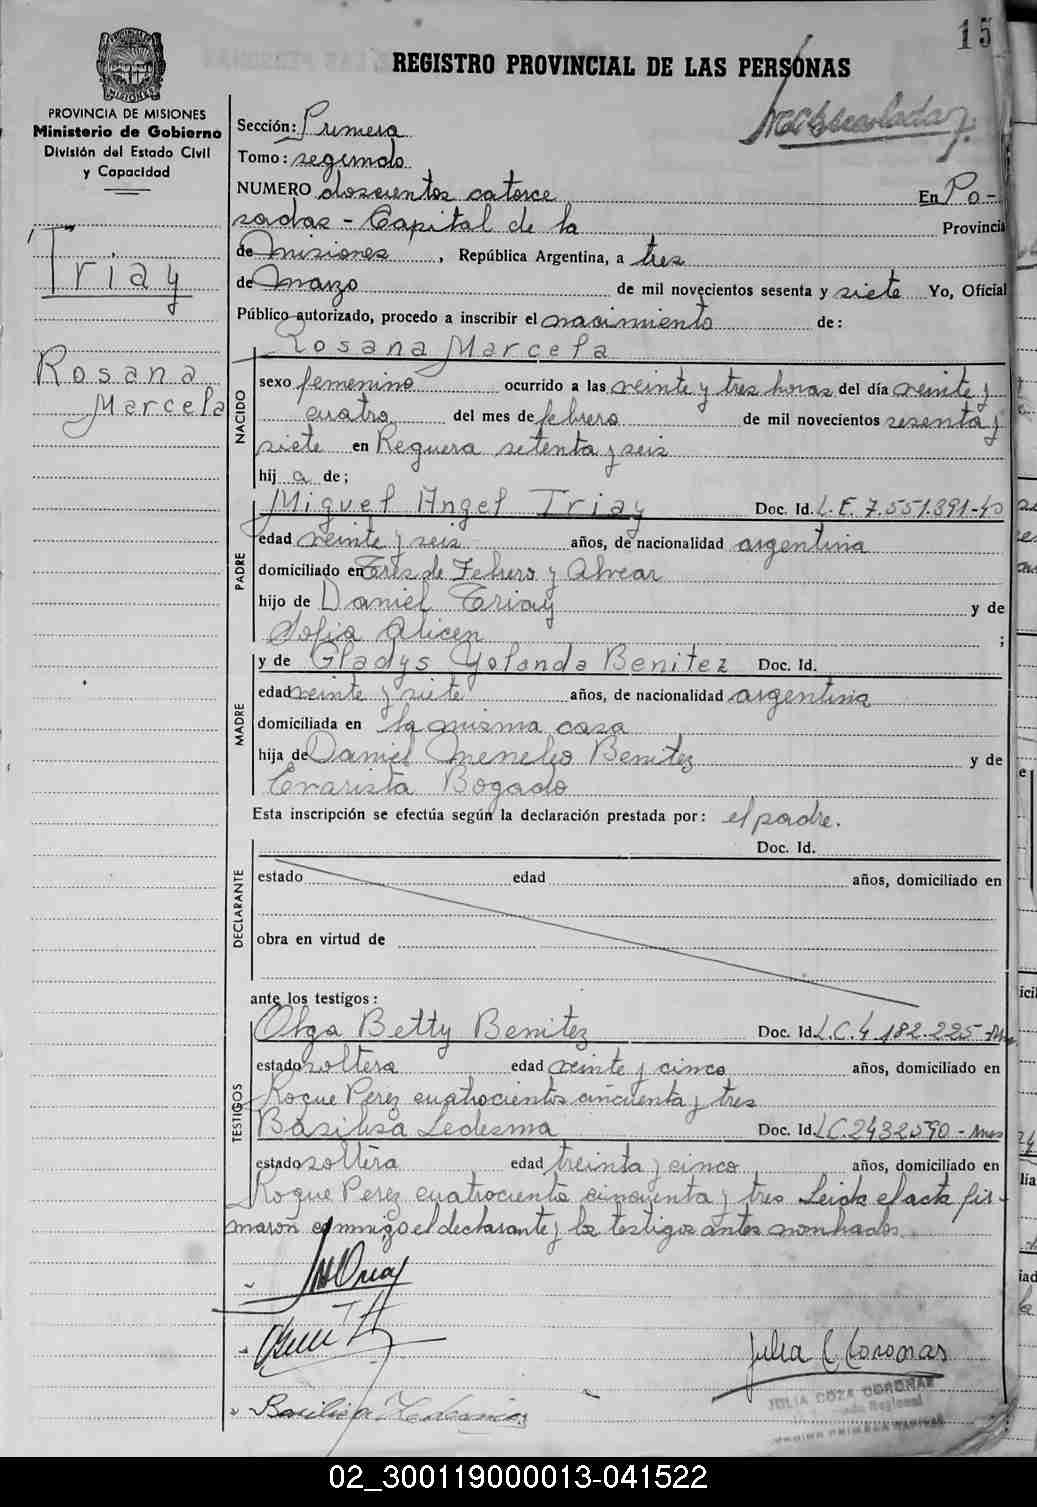 15
REGISTRO PROVINCIAL DE LAS PERSONAS
PROVINCIA DE MISIONES
Ministerio de Gobierno
División del Estado Civil
y Capacidad
Triay
Rosana
Marcela
Sección: Primera
Tomo: segundo
NUMERO doscientos catorce En Po-
sadas - Capital de la Provincia
de Misiones, República Argentina, a tres
de Marzo de mil novecientos sesenta y siete Yo, Oficial
Público autorizado, procedo a inscribir el nacimiento de:
Rosana Marcela
NACIDO
sexo femenino ocurrido a las veinte y tres horas del día veinte y
cuatro del mes de febrero de mil novecientos sesenta y
siete en Reguera setenta y seis
hij a de;
PADRE
Miguel Angel Triay Doc. Id. L.E. 7.551.391
edad veinte y seis años, de nacionalidad argentina
domiciliado en Tres de Febrero y Alvear
hijo de Daniel Triay y de
Sofia Alicen ;
y de Gladys Yolanda Benitez Doc. Id.
MADRE
edad veinte y siete años, de nacionalidad argentina
domiciliada en la misma casa
hija de Daniel Menelio Benitez y de
Evarista Bogado
Esta inscripción se efectúa según la declaración prestada por: el padre.
DECLARANTE
Doc. Id.
estado edad años, domiciliado en
obra en virtud de
ante los testigos:
TESTIGOS
Olga Betty Benitez Doc. Id. L.C. 4.182.225
estado soltera edad veinte y cinco años, domiciliado en
Roque Perez cuatrocientos cincuenta y tres
Basilisa Ledesma Doc. Id. LC. 2432590
estado soltera edad treinta y cinco años, domiciliado en
Roque Perez cuatrocientos cincuenta y tres Leida el acta fir-
maron conmigo el declarante y los testigos antes nombrados
Julia C Coronas
JULIA COZA CORONAS
Basilisa Ledesma
02_300119000013-041522